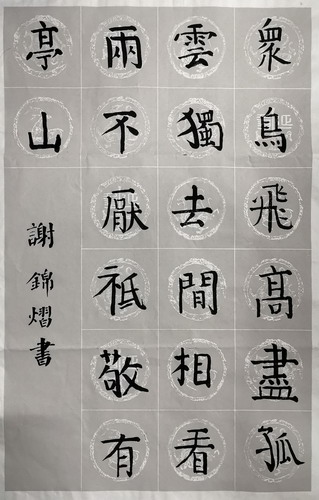 衆鳥飛髙盡孤
雲獨去間相看
兩不厭祇敬有
亭山
謝錦熠書